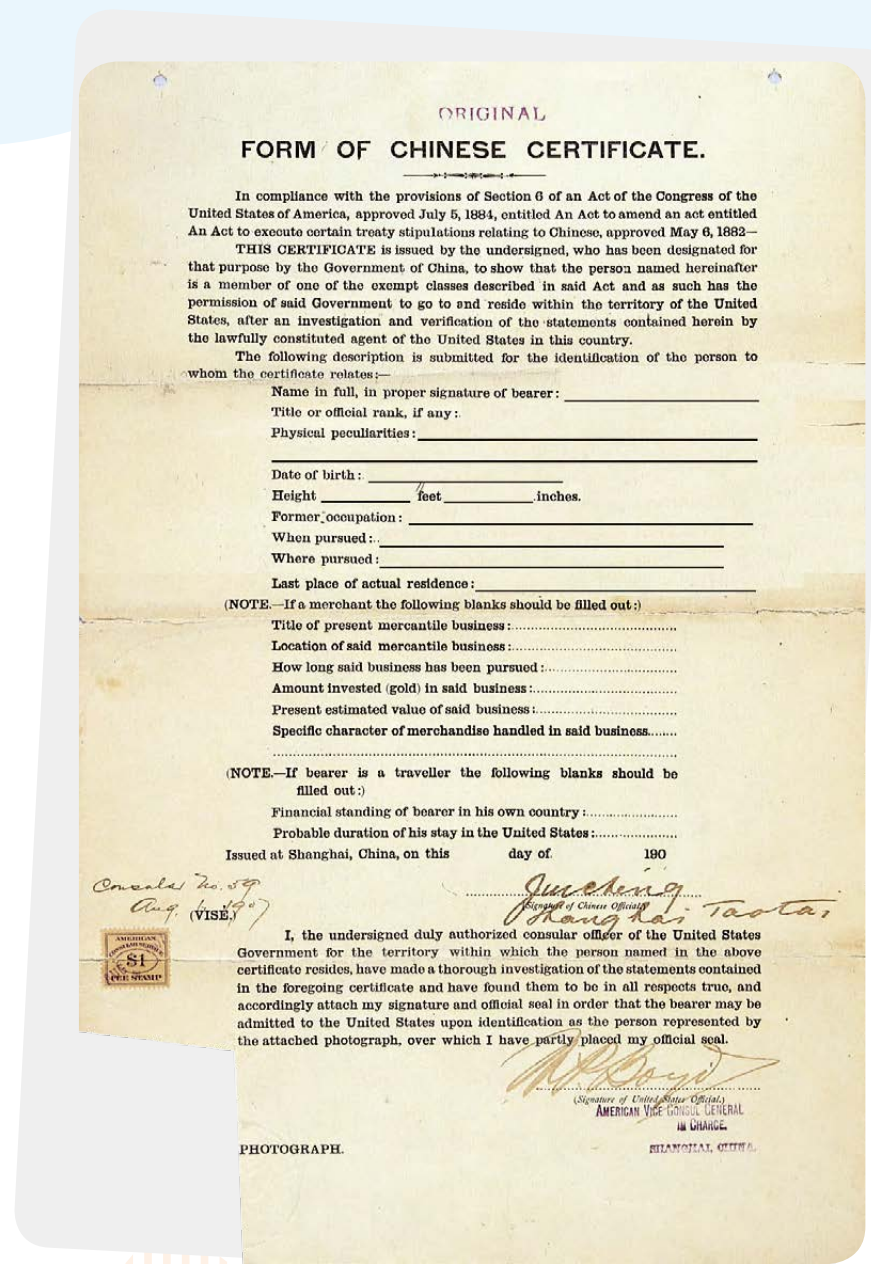 ORIGINAL
FORM OF CHINESE CERTIFICATE.
In compliance with the provisions of Section 6 of an Act of the Congress of the
United States of America, approved July 5, 1884, entitled An Act to amend an act entitled
An Act to execute certain treaty stipulations relating to Chinese, approved May 6, 1882—
THIS CERTIFICATE is issued by the undersigned, who has been designated for
that purpose by the Government of China, to show that the person named hereinafter
is a member of one of the exempt classes described in said Act and as such has the
permission of said Government to go to and reside within the territory of the United
States, after an investigation and verification of the statements contained herein by
the lawfully constituted agent of the United States in this country.
The following description is submitted for the identification of the person to
whom the certificate relates:—
Name in full, in proper signature of bearer:
Title or official rank, if any:
Physical peculiarities:
Date of birth:
Height feet inches.
Former occupation:
When pursued:
Where pursued:
Last place of actual residence:
(NOTE.—If a merchant the following blanks should be filled out:)
Title of present mercantile business:
Location of said mercantile business:
How long said business has been pursued:
Amount invested (gold) in said business:
Present estimated value of said business:
Specific character of merchandise handled in said business
(NOTE.—If bearer is a traveller the following blanks should be
filled out:)
Financial standing of bearer in his own country:
Probable duration of his stay in the United States:
Issued at Shanghai, China, on this day of 190
Consular No. 59
Aug. 1907
Juicheng
(Signature of Chinese Official.)
Shanghai Taotai
(VISE.)
AMERICAN
CONSULAR SERVICE
$1
FEE STAMP
I, the undersigned duly authorized consular officer of the United States
Government for the territory within which the person named in the above
certificate resides, have made a thorough investigation of the statements contained
in the foregoing certificate and have found them to be in all respects true, and
accordingly attach my signature and official seal in order that the bearer may be
admitted to the United States upon identification as the person represented by
the attached photograph, over which I have partly placed my official seal.
Boyd
(Signature of United States Official.)
AMERICAN VICE CONSUL GENERAL
IN CHARGE.
SHANGHAI, CHINA.
PHOTOGRAPH.